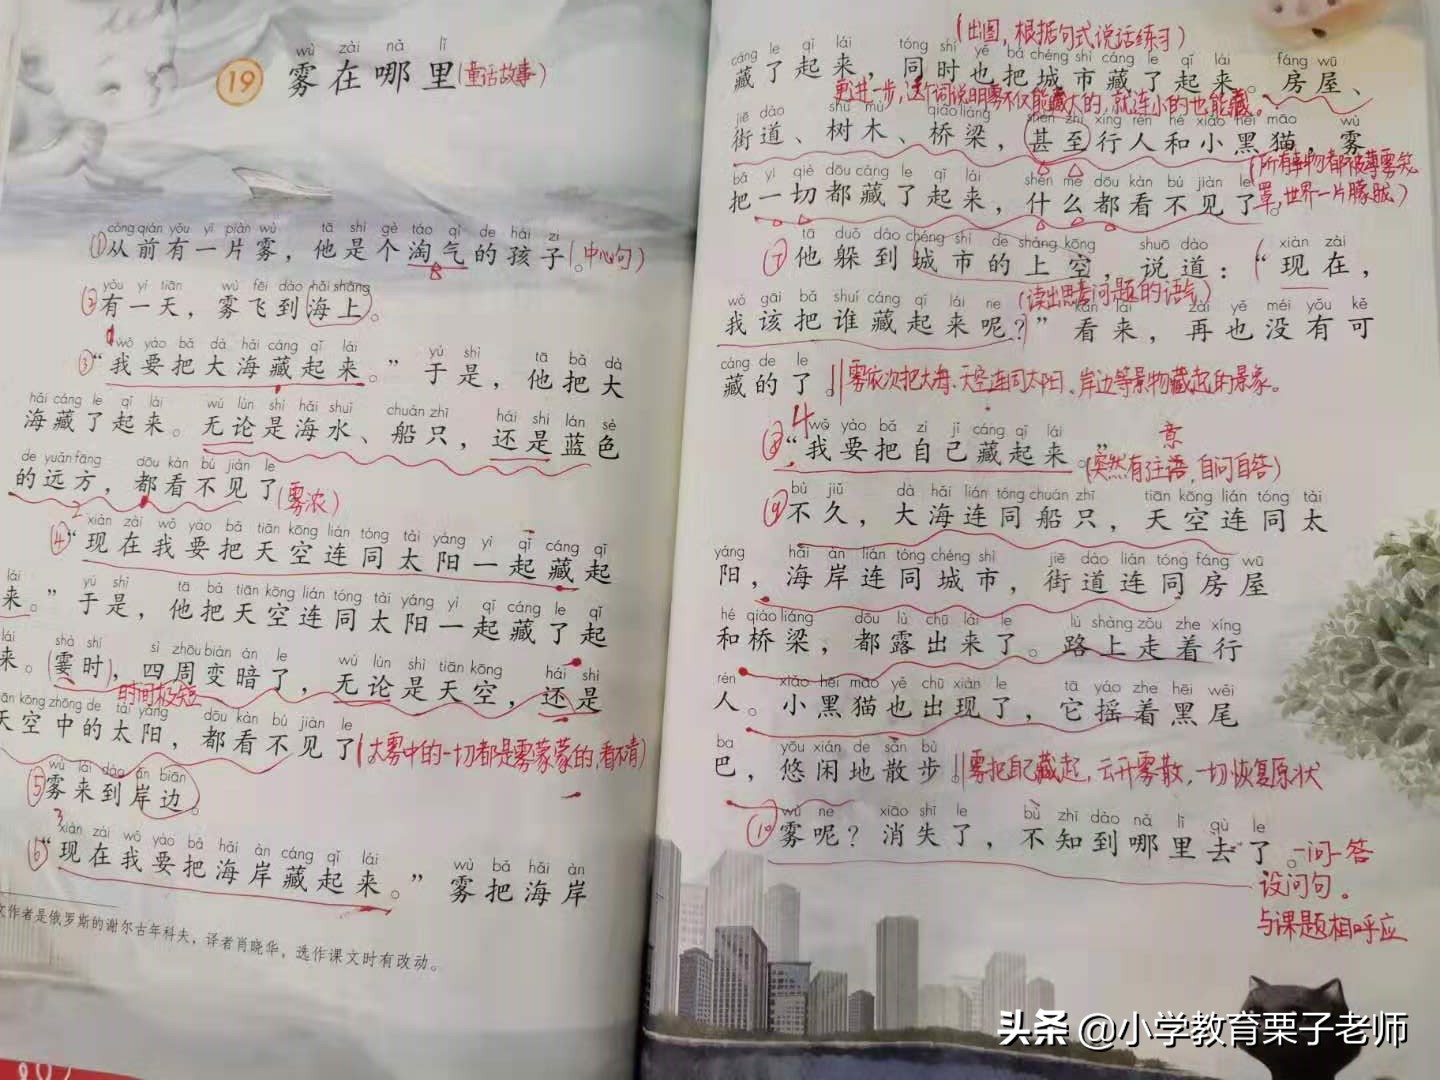 wù zài nǎ lǐ
19 雾在哪里(童话故事)
cóng qián yǒu yí piàn wù tā shì gè táo qì de hái zi
①从前有一片雾，他是个淘气的孩子。(中心句)
yǒu yì tiān wù fēi dào hǎi shàng
②有一天，雾飞到海上。
wǒ yào bǎ dà hǎi cáng qǐ lái yú shì tā bǎ dà
③“我要把大海藏起来。”于是，他把大
hǎi cáng le qǐ lái wú lùn shì hǎi shuǐ chuán zhī hái shì lán sè
海藏了起来。无论是海水、船只，还是蓝色
de yuǎn fāng dōu kàn bú jiàn le
的远方，都看不见了(雾浓)
2
xiàn zài wǒ yào bǎ tiān kōng lián tóng tài yáng yì qǐ cáng qǐ
④“现在我要把天空连同太阳一起藏起
lái yú shì tā bǎ tiān kōng lián tóng tài yáng yì qǐ cáng le qǐ
来。”于是，他把天空连同太阳一起藏了起
lái shà shí sì zhōu biàn àn le wú lùn shì tiān kōng hái shì
来。霎时，四周变暗了，无论是天空，还是
时间极短
tiān kōng zhōng de tài yáng dōu kàn bú jiàn le
天空中的太阳，都看不见了(大雾中的一切都是雾蒙蒙的，看不清)
wù lái dào àn biān
⑤雾来到岸边。
3
xiàn zài wǒ yào bǎ hǎi àn cáng qǐ lái wù bǎ hǎi àn
⑥“现在我要把海岸藏起来。”雾把海岸
文作者是俄罗斯的谢尔古年科夫，译者肖晓华，选作课文时有改动。
(出图，根据句式说话练习)
cáng le qǐ lái tóng shí yě bǎ chéng shì cáng le qǐ lái fáng wū
藏了起来，同时也把城市藏了起来。房屋、
更进一步，这个词说明雾不仅能藏大的，就连小的也能藏。
jiē dào shù mù qiáo liáng shèn zhì xíng rén hé xiǎo hēi māo wù
街道、树木、桥梁，甚至行人和小黑猫，雾
bǎ yí qiè dōu cáng le qǐ lái shén me dōu kàn bú jiàn le
把一切都藏了起来，什么都看不见了。
(所有事物都被薄雾笼
罩，世界一片朦胧)
tā duǒ dào chéng shì de shàng kōng shuō dào xiàn zài
⑦他躲到城市的上空，说道：“现在，
(读出思考问题的语气)
wǒ gāi bǎ shuí cáng qǐ lái ne kàn lái zài yě méi yǒu kě
我该把谁藏起来呢？”看来，再也没有可
cáng de le
藏的了。||雾依次把大海、天空连同太阳、岸边等景物藏起的景象。
4
wǒ yào bǎ zì jǐ cáng qǐ lái
⑧“我要把自己藏起来。”(突然有主意，自问自答)
bù jiǔ dà hǎi lián tóng chuán zhī tiān kōng lián tóng tài
⑨不久，大海连同船只，天空连同太
yáng hǎi àn lián tóng chéng shì jiē dào lián tóng fáng wū
阳，海岸连同城市，街道连同房屋
hé qiáo liáng dōu lù chū lái le lù shàng zǒu zhe xíng
和桥梁，都露出来了。路上走着行
rén xiǎo hēi māo yě chū xiàn le tā yáo zhe hēi wěi
人。小黑猫也出现了，它摇着黑尾
ba yōu xián de sàn bù
巴，悠闲地散步。||雾把自己藏起，云开雾散，一切恢复原状
wù ne xiāo shī le bù zhī dào nǎ lǐ qù le
⑩雾呢？消失了，不知到哪里去了。一问一答
设问句。
与课题相呼应
头条 @小学教育栗子老师